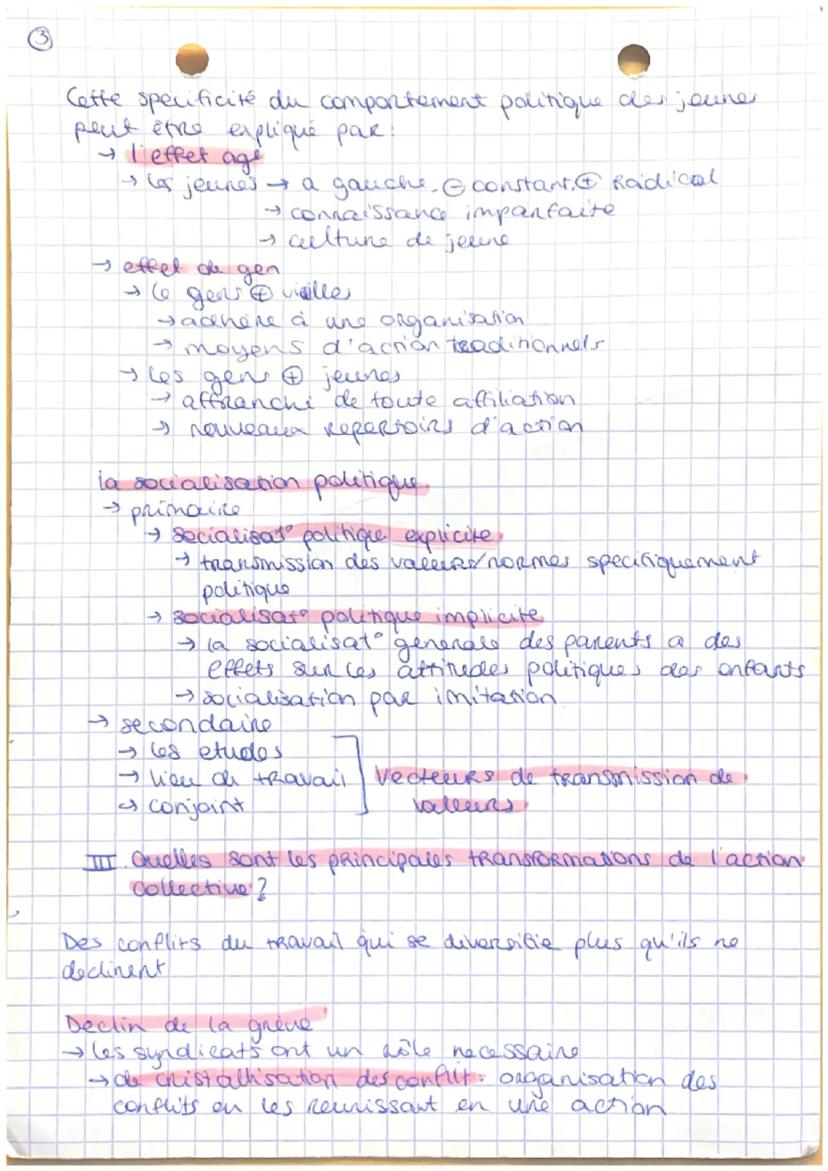 ③
Cette specificité du comportement politique des jeunes
peut être expliqué par:
→ l'effet age
→ les jeunes → a gauche, ⊖ constant, ⊕ Radical
→ connaissance imparfaite
→ culture de jeune
→ effet de gen
→ le gens ⊕ vieilles
→ adhère à une organisation
→ moyens d'action traditionnels
→ les gens ⊕ jeunes
→ affranchi de toute affiliation
→ nouveaux repertoirs d'action
la socialisation politique
→ primaire
→ socialisat° politique explicite
→ transmission des valeurs/normes specifiquement
politique
→ socialisat° politique implicite
→ la socialisat° generale des parents a des
effets sur les attitudes politiques des enfants
→ socialisation par imitation
→ secondaire
→ les etudes
→ lieu de travail
→ conjoint
Vecteurs de transmission de
valeurs
III. Quelles sont les principales transformations de l'action
collective?
Des conflits du travail qui se diversifie plus qu'ils ne
declinent
Declin de la grève
→ les syndicats ont un rôle necessaire
→ de cristallisation des conflit: organisation des
conflits en les reunissant en une action